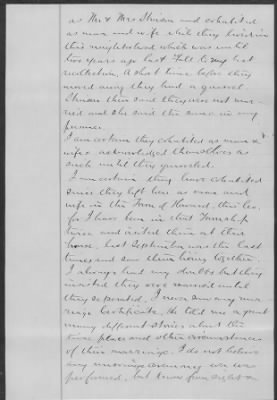 as Mr & Mrs Stinson and cohabited
as man and wife while they lived in
this neighborhood which was until
two years ago last Fall to my best
recollection. A short time before they
moved away they had a quarrel.
Stinson then said they were not mar
ried and she said the same in my
presence.
I am certain they cohabited as man &
wife & acknowledged themselves as
such until they quarreled.
I am certain they have cohabited
since they left here as man and
wife in the Town of Howard, this Co.
for I have been in that Township
twice and visited them at their
house, last September was the last
time and saw them living together.
I always had my doubts but they
insisted they were married until
they separated. I never saw any mar
riage certificate. He told me a great
many different stories about the
time, place and other circumstances
of their marriage. I do not believe
any marriage ceremony ever was
performed, but know from